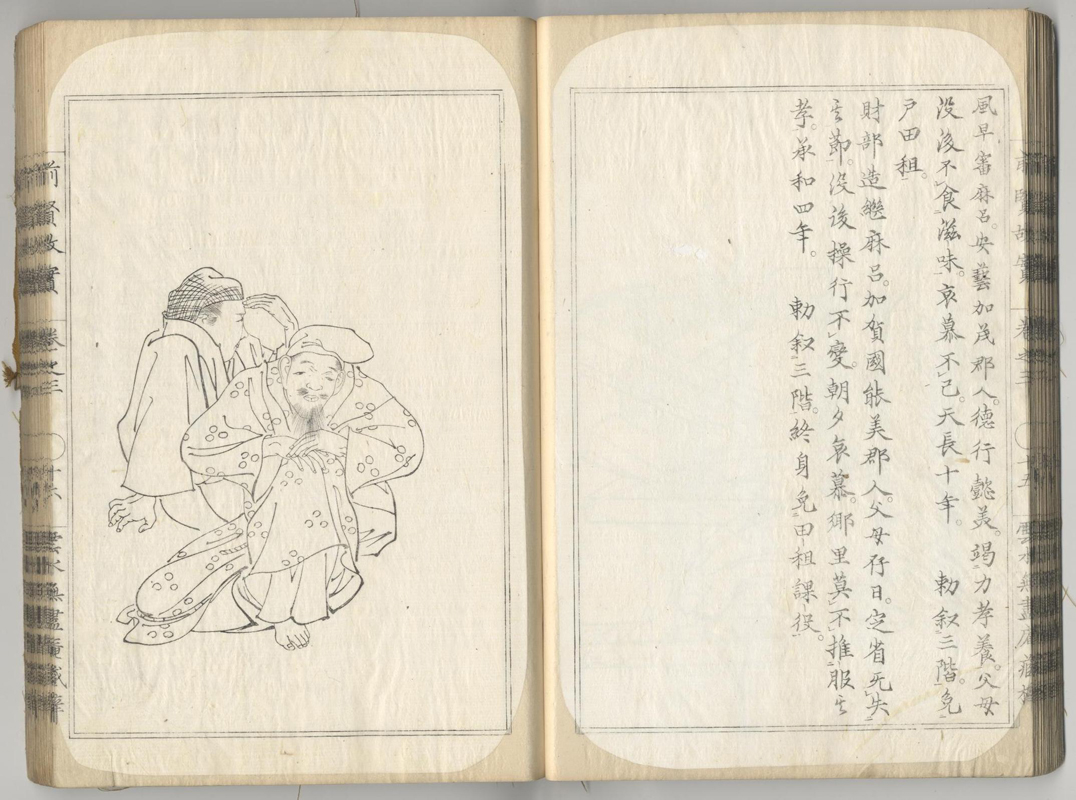 風早審麻呂。安藝加茂郡人。德行懿美。竭力孝養。父母
没後不食滋味。哀慕不已。天長十年。 勅叙三階。免
戸田租。
財部造継麻呂。加賀國能美郡人。父母存日。定省无失
其節。没後操行不變。朝夕哀慕。郷里莫不推服其
孝。承和四年。 勅叙三階。終身免田租課役。
前賢故實 卷之三 十五
前賢故實 卷之三 十六